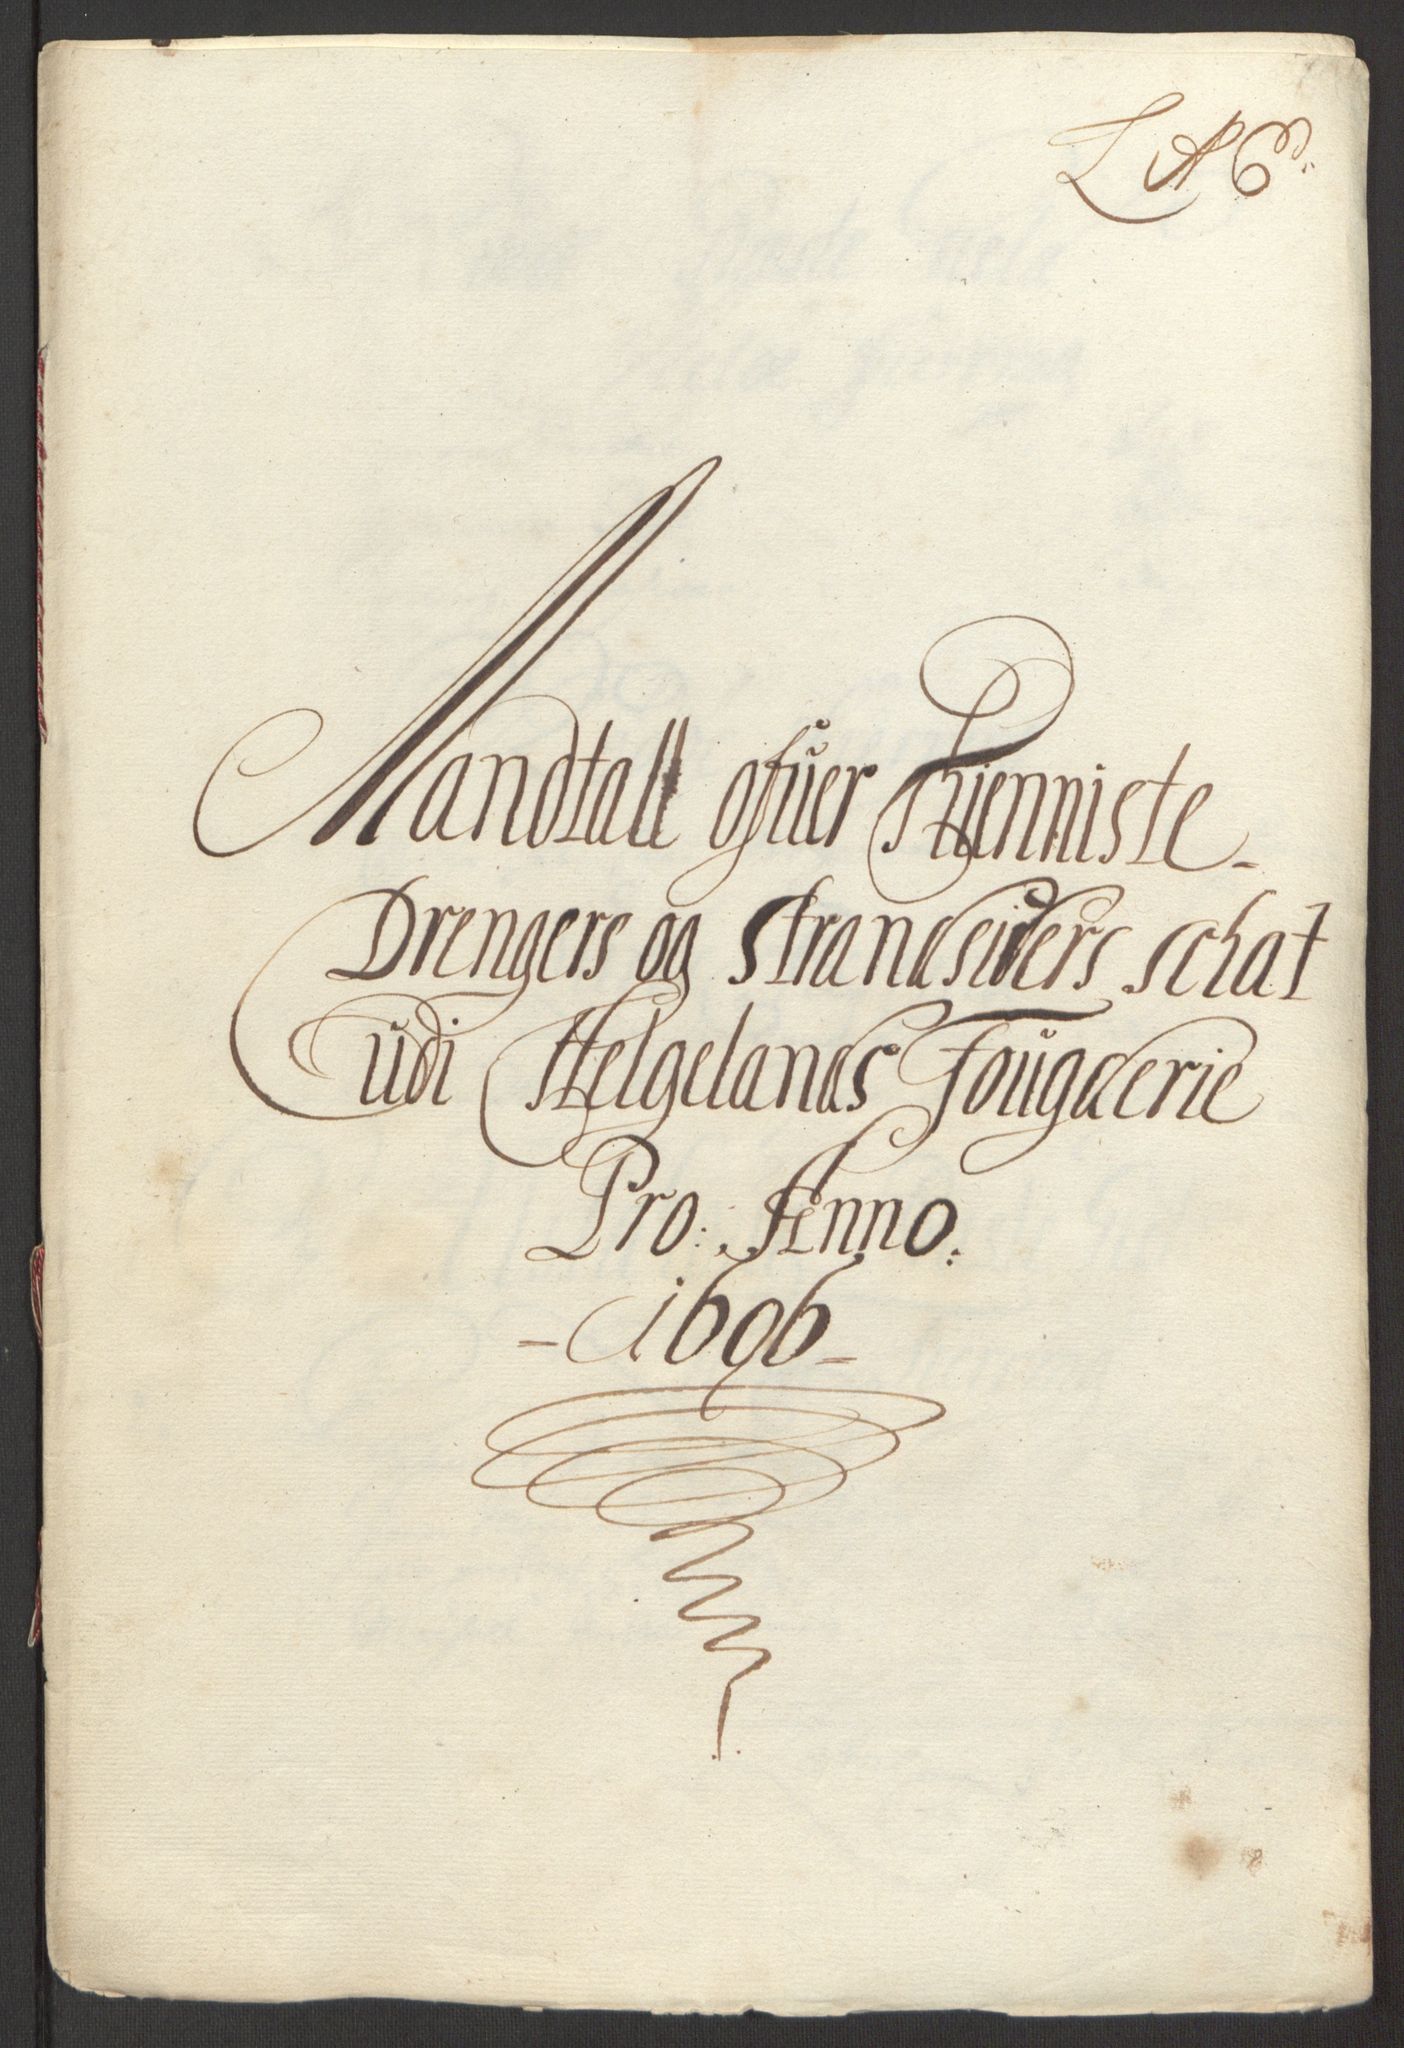 L A C:
Mandtall ofuer Thienniste-
Drengers og Strandsiders schat
udi Helgelands Fougderie
Pro: Anno:
-1696-